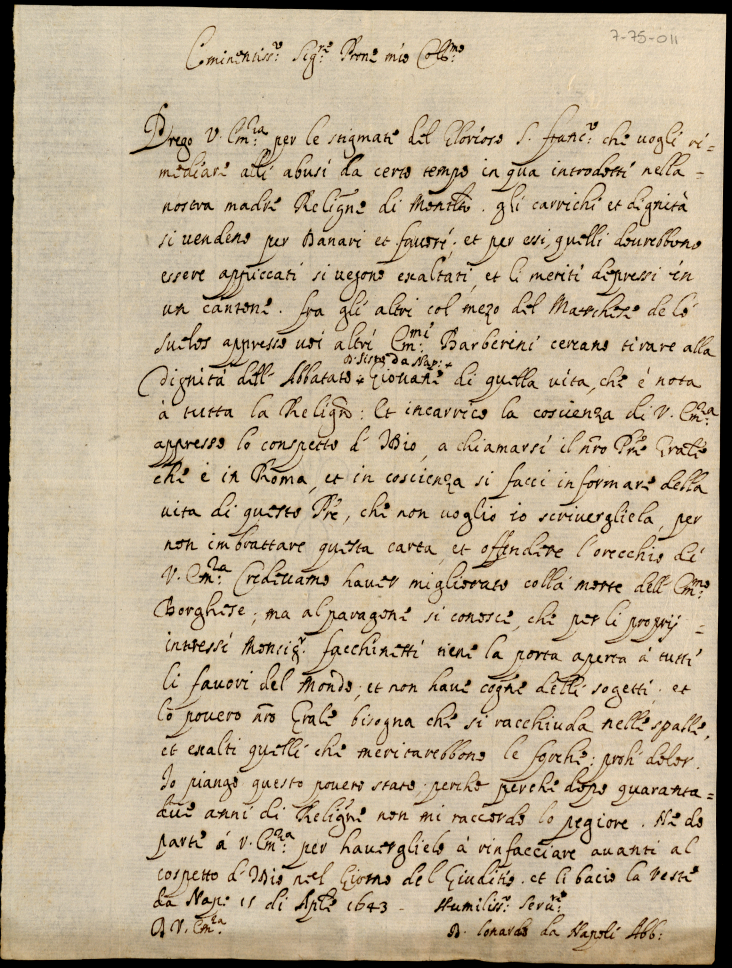 7-75-011
Eminentiss.e Sig.re Prone mio Coll.mo
Prego V. Em.za per le stigmate del Glorioso S. Franc.o che vogli ri=
mediare alli abusi da certo tempo in qua introdotti nella=
nostra madre Religne di Monte. gli carrichi et dignità
si vendeno per Danari et favori; et per essi, quelli dovrebbono
essere appiccati si vegono exaltati, et li meriti depressi in
un cantone. fra gli altri col mezo del Marchese de lo
Suelos appresso voi altri Em.mi Barberini cercano tirare alla
D. Sisto da Nap: +
Dignità dell' Abbatato + Giovane di quella vita, che é nota
à tutta la Religne: Et incarrico la coscienza di V. Em.za
appresso lo conspetto d' Dio, a chiamarsi il nro Pre Grale
che è in Roma, et in coscienza si facci informare della
vita di questo Pre, che non voglio io scrivergliela, per
non imbrattare questa carta, et offendere l'orecchio di
V. Em.za Credevamo haver migliorato colla morte dell' Em.mo
Borghese; ma al paragone si conosce, che per li proprij=
interessi Monsig.r facchinetti tiene la porta aperta à tutti
li favori del Mondo; et non have cogne delli sogetti. et
lo povero nro Grale bisogna che si racchiuda nelle spalle,
et exalti quelli che meritarebbono le forche; proh dolor.
Io piango questo povero stato; perche perche dopo quaranta=
due anni di Religne non mi raccordo lo pegiore. Ne do
parte á V. Em.za per haverglielo à rinfacciare avanti al
cospetto d' Dio nel Giorno del Giuditio. et li bacio la veste
da Nap: 15 di Aple 1643 - Humiliss.o Serv.re
D V. Em.za D. Lonardo da Napoli Abb: